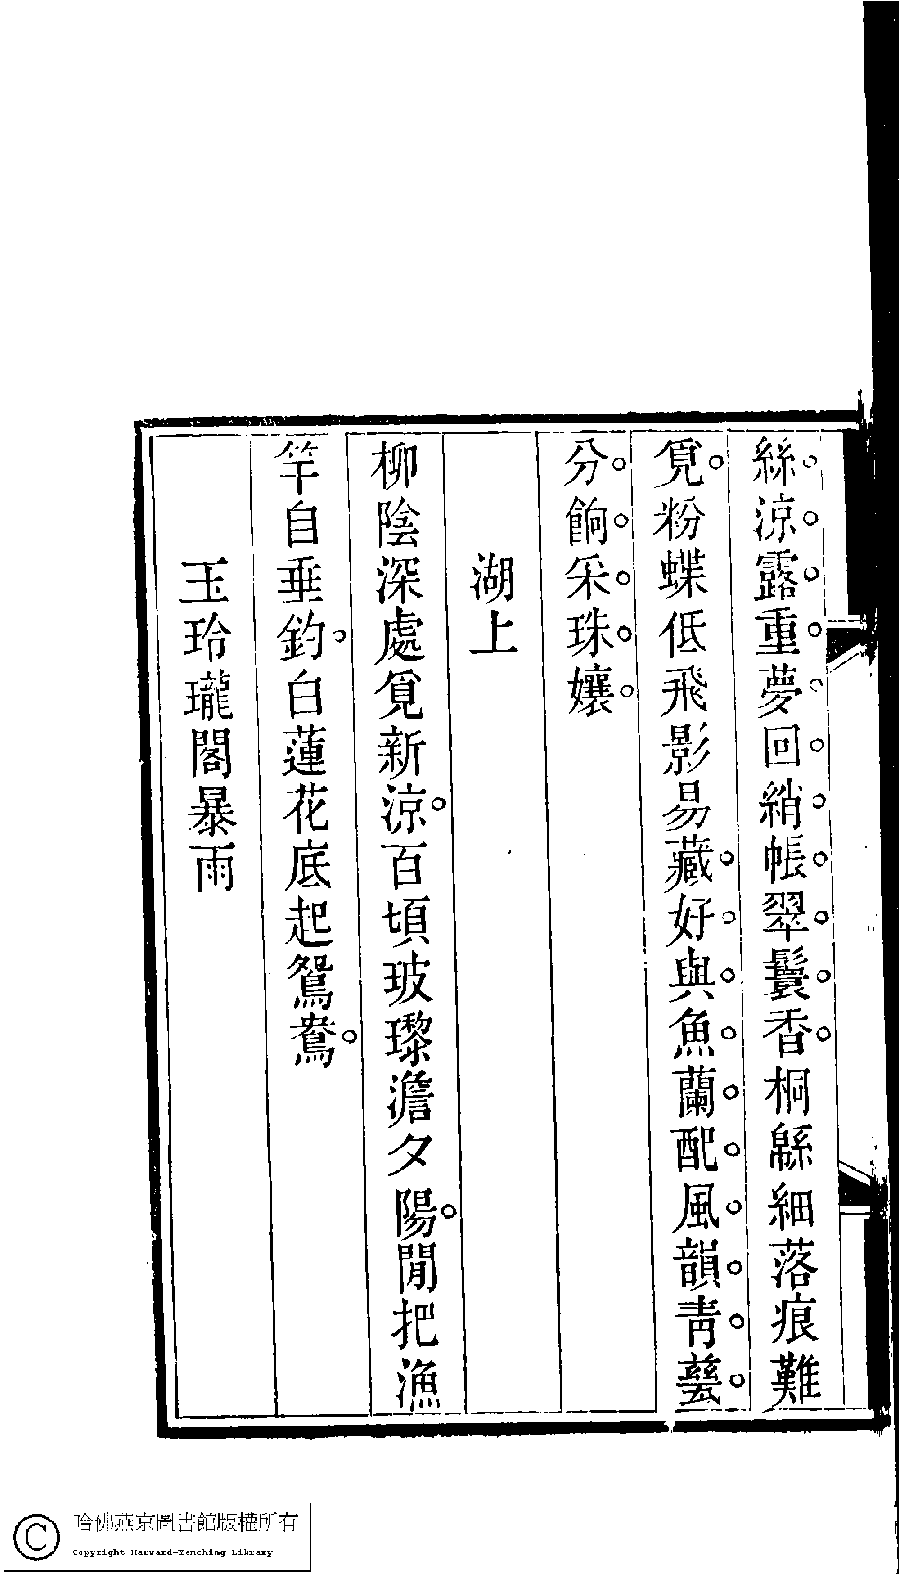 絲涼露重夢回綃帳翠鬟香桐緜細落痕難
覓粉蝶低飛影易藏好與魚蘭配風韻青甆
分餉采珠孃
湖上
柳陰深處覓新涼百頃玻瓈澹夕陽閒把漁
竿自垂釣白蓮花底起鴛鴦
玉玲瓏閣暴雨
哈佛燕京圖書館版權所有
Copyright Harvard-Yenching Library